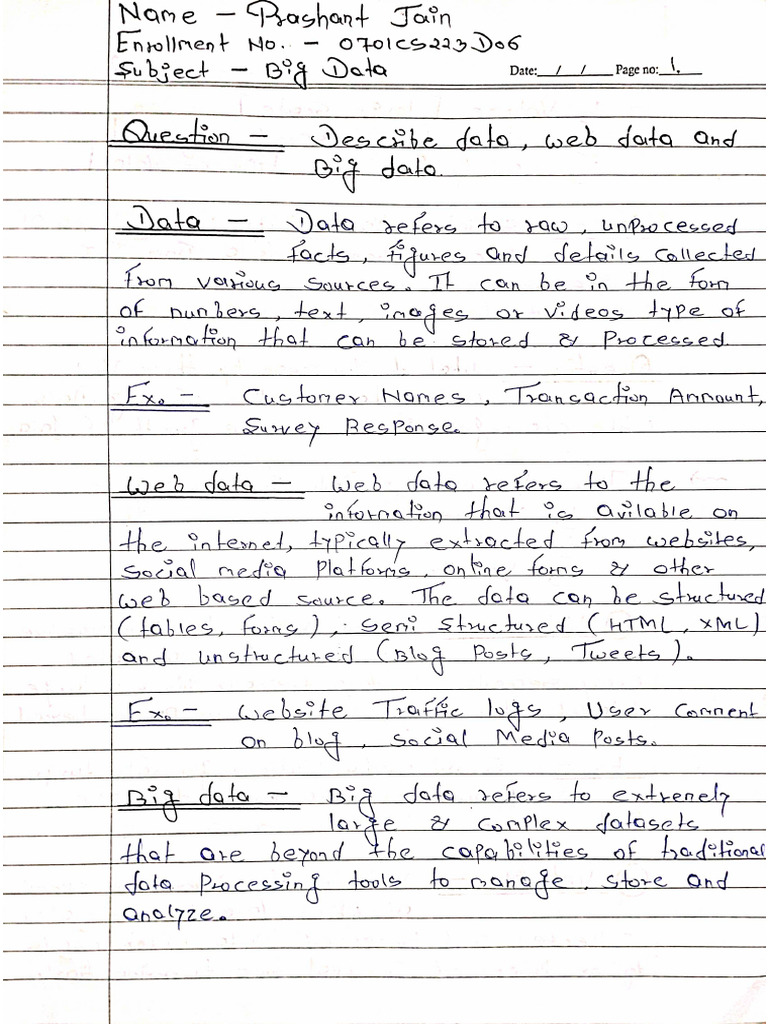 Name - Prashant Jain
Enrollment No. - 0701CS223D06
Subject - Big Data Date: / / Page no: 1.
Question - Describe data, web data and
Big data.
Data - Data refers to raw, unprocessed
facts, figures and details collected
from various sources. It can be in the form
of numbers, text, images or videos type of
information that can be stored & Processed.
Ex. - Customer Names, Transaction Ammount,
Survey Response.
Web data - Web data refers to the
information that is avilable on
the internet, typically extracted from websites,
social media Platforms, online forms & other
web based source. The data can be structured
(tables, forms), semi structured (HTML, XML)
and unstructured (Blog Posts, Tweets).
Ex. - Website Traffic logs, User Comment
on blog, social Media Posts.
Big data - Big data refers to extremely
large & complex datasets
that are beyond the capabilities of traditional
data Processing tools to manage, store and
analyze.